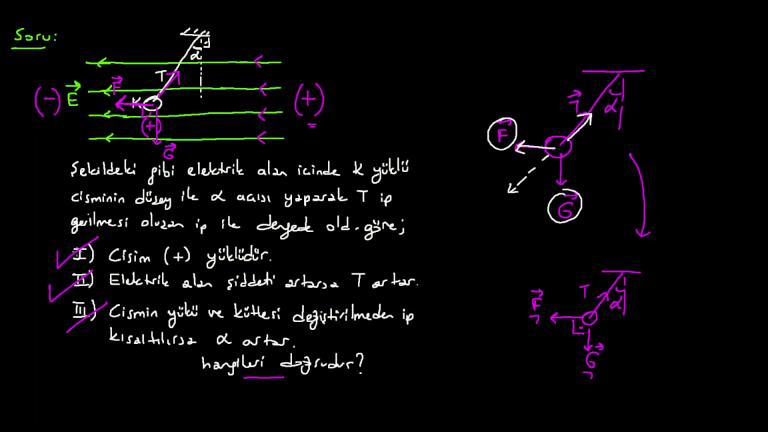 Soru:
α
T
F
(-) E K (+)
(+)
G
Şekildeki gibi elektrik alan içinde K yüklü
cisminin düşey ile α açısı yaparak T ip
gerilmesi oluşan ip ile dengede old. göre;
I) Cisim (+) yüklüdür.
II) Elektrik alan şiddeti artarsa T artar.
III) Cismin yükü ve kütlesi değiştirilmeden ip
kısaltılırsa α artar.
hangileri doğrudur?
T α
F
G
T α
F
L
G